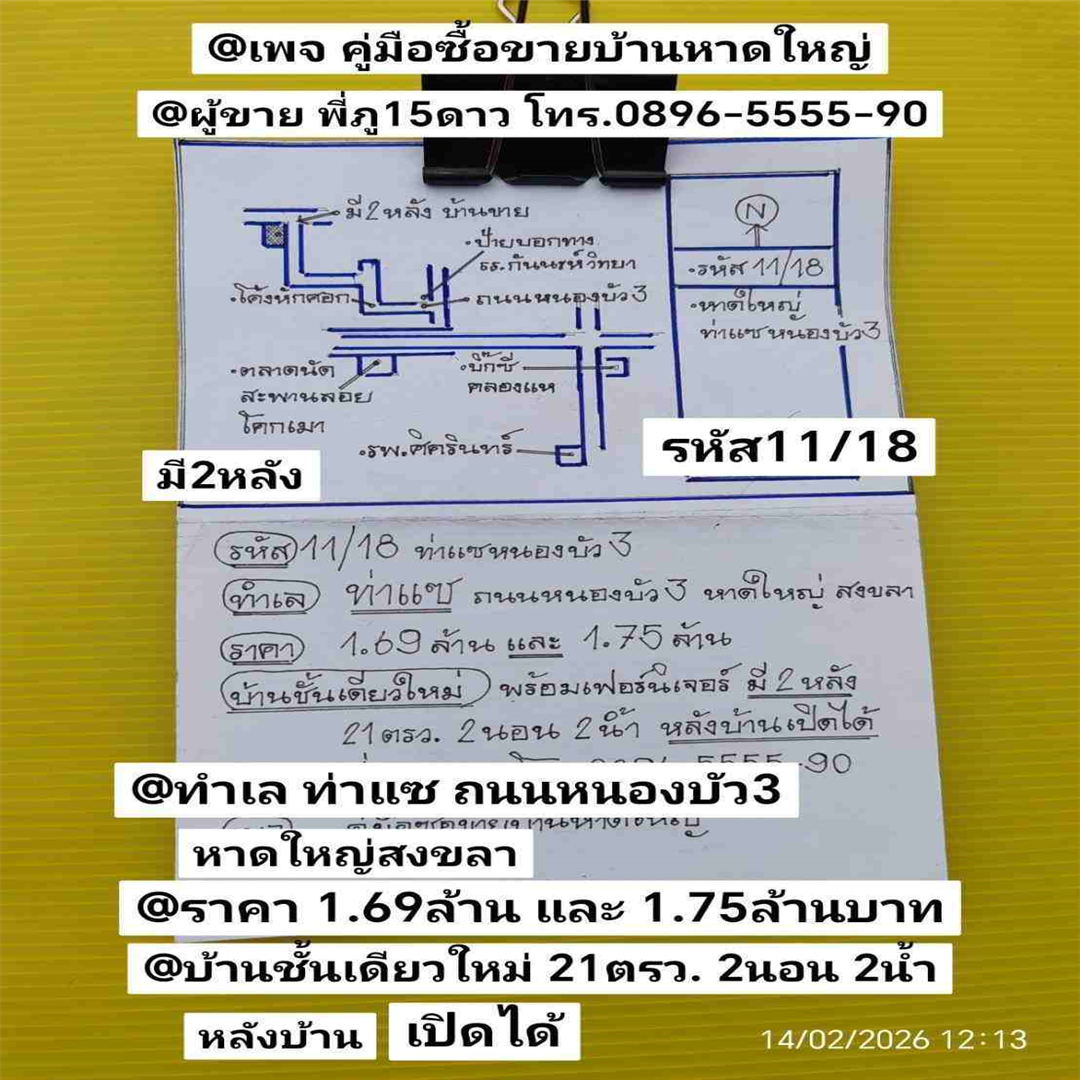 @เพจ คู่มือซื้อขายบ้านหาดใหญ่
@ผู้ขาย พี่ภู15ดาว โทร.0896-5555-90
มี2หลัง บ้านขาย
ป้ายบอกทาง
รร.กันนะห์วิทยา
โค้งหักศอก
ถนนหนองบัว3
ตลาดนัด
สะพานลอย
โคกเมา
บิ๊กซี
คลองแห
รพ.ศิครินทร์
N
รหัส 11/18
หาดใหญ่
ท่าแซหนองบัว3
รหัส11/18
มี2หลัง
รหัส 11/18 ท่าแซหนองบัว3
ทำเล ท่าแซ ถนนหนองบัว3 หาดใหญ่ สงขลา
ราคา 1.69 ล้าน และ 1.75 ล้าน
บ้านชั้นเดียวใหม่ พร้อมเฟอร์นิเจอร์ มี 2 หลัง
21 ตรว. 2 นอน 2 น้ำ หลังบ้านเปิดได้
5555-90
@ทำเล ท่าแซ ถนนหนองบัว3
คู่มือซื้อขายบ้านหาดใหญ่
หาดใหญ่สงขลา
@ราคา 1.69ล้าน และ 1.75ล้านบาท
@บ้านชั้นเดียวใหม่ 21ตรว. 2นอน 2น้ำ
หลังบ้าน เปิดได้
14/02/2026 12:13